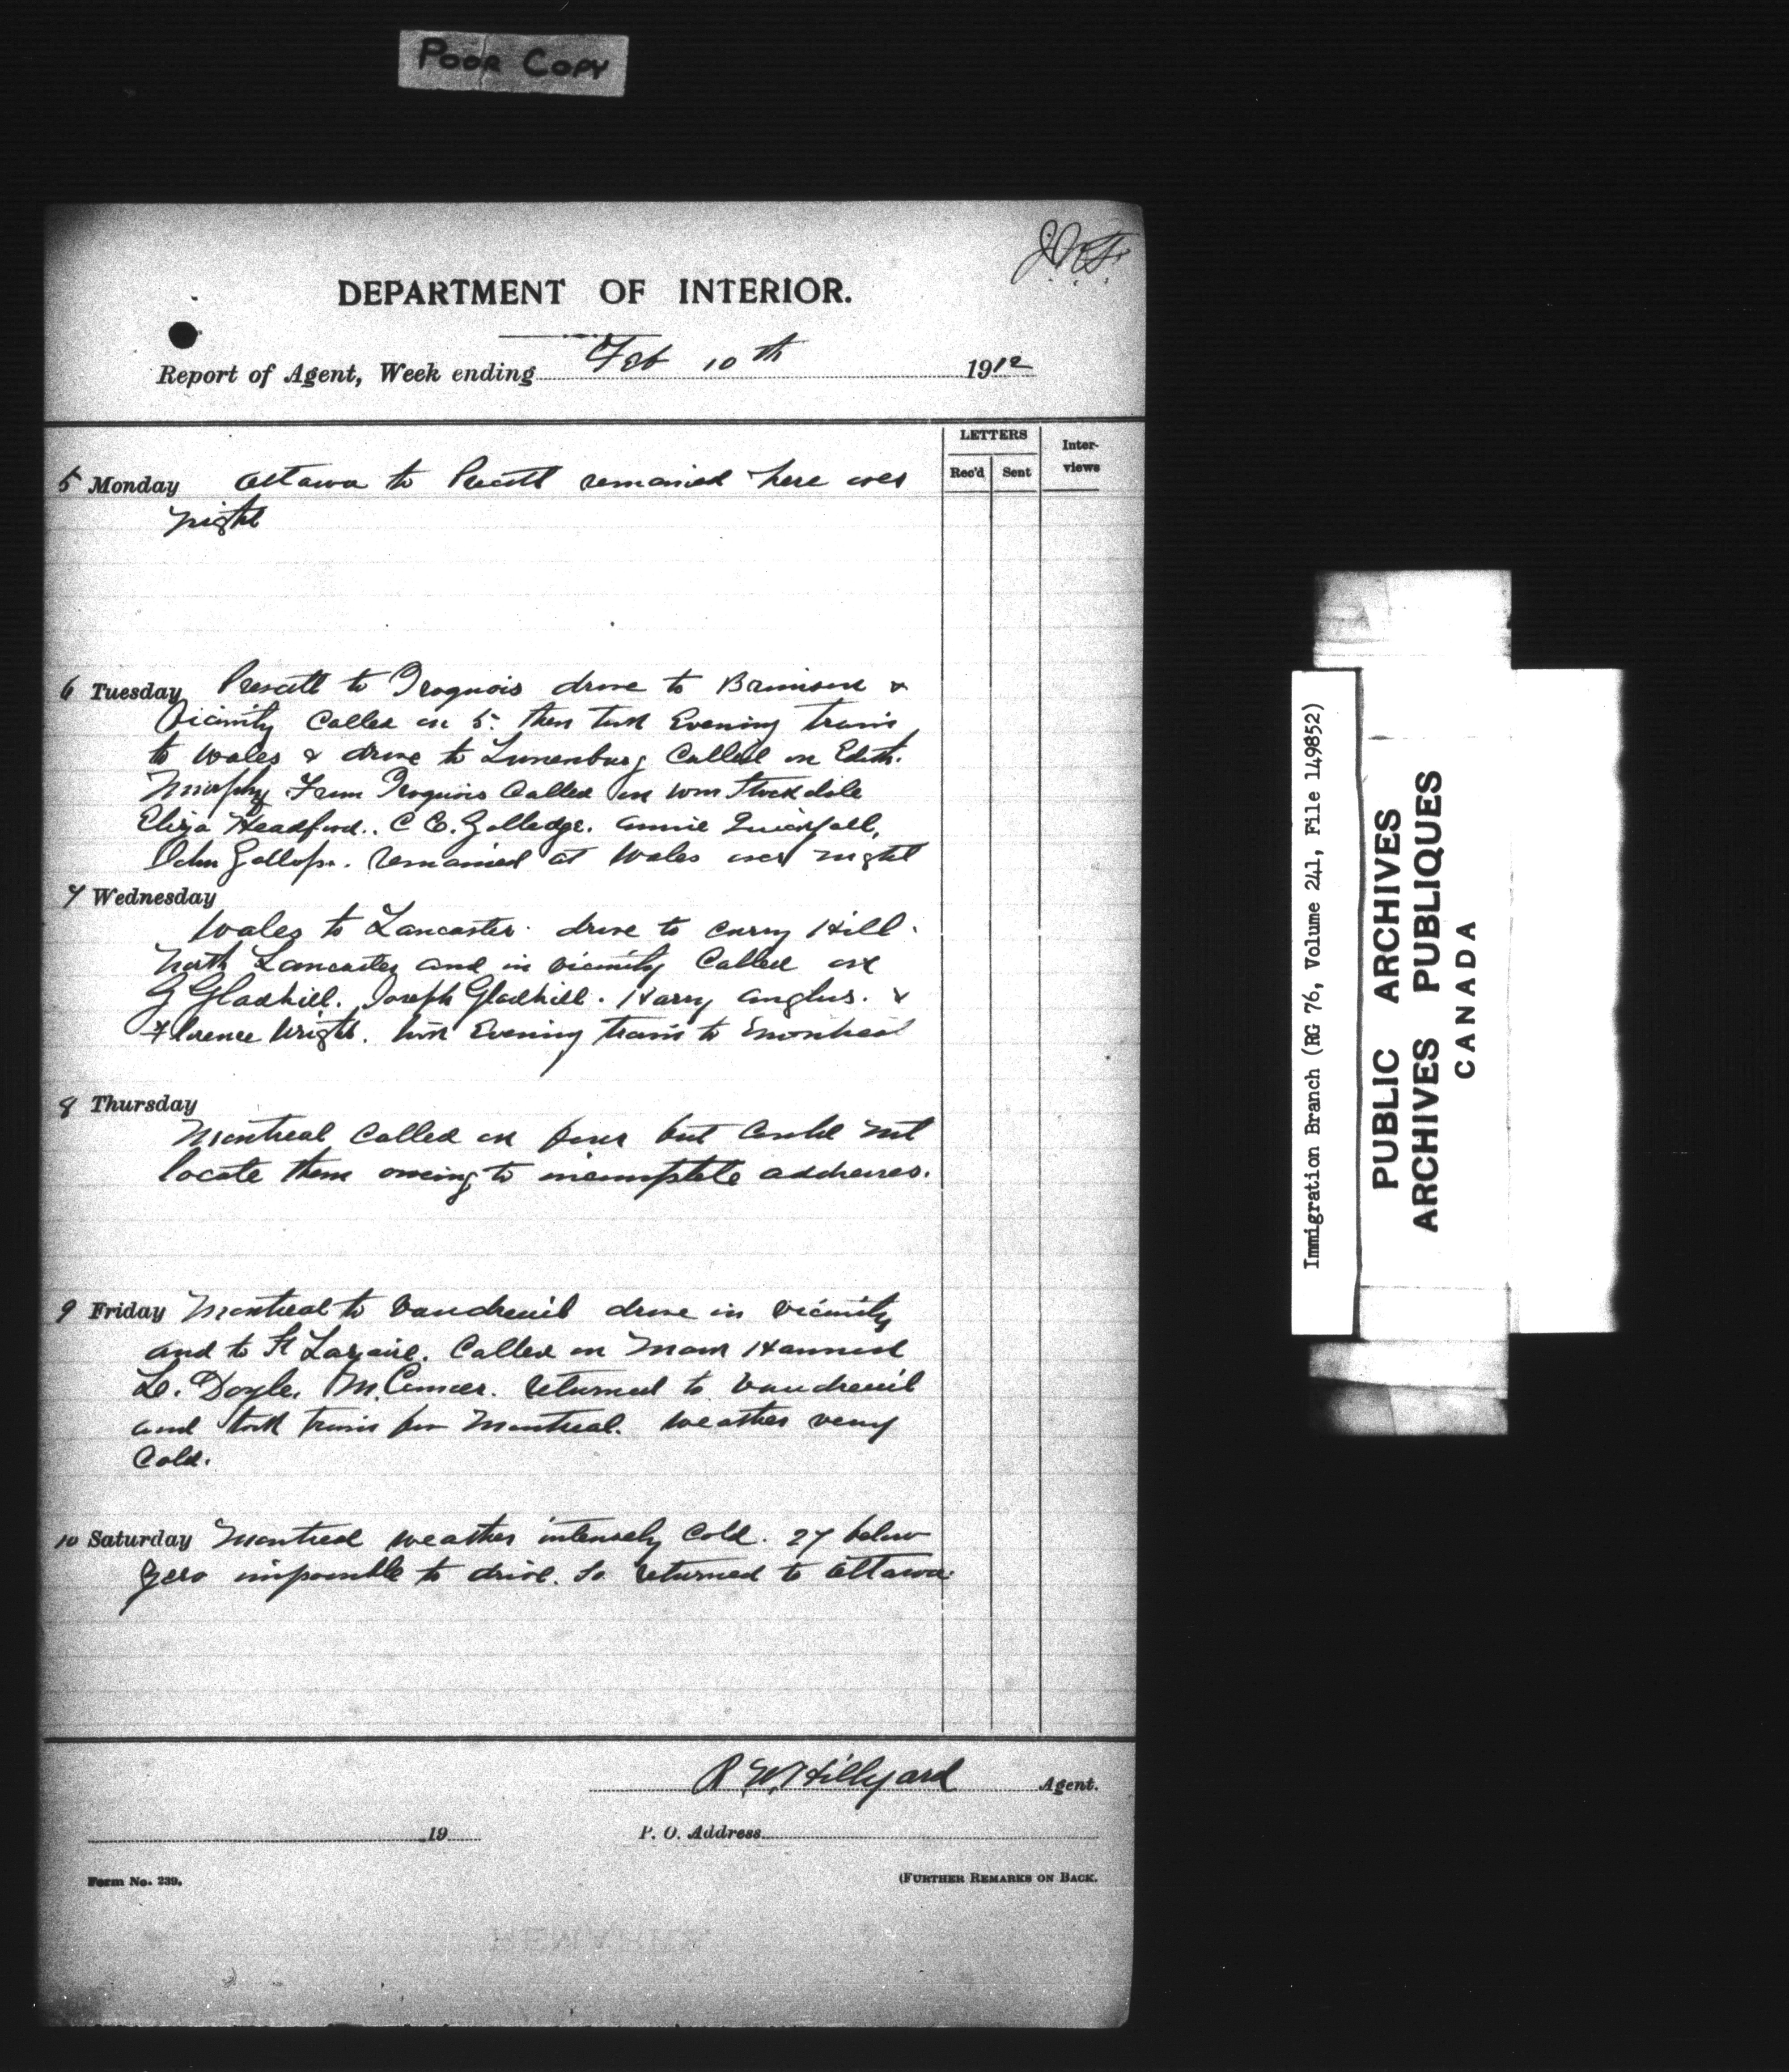 POOR COPY
DEPARTMENT OF INTERIOR.
Report of Agent, Week ending Feb 10th 1912
LETTERS
Rec'd Sent
Inter-
views
5 Monday Ottawa to Prescott remained here over
night
6 Tuesday Prescott to Iroquois drive to &
Vicinity Called on 5. then took Evening train
to Wales & drive to Lunenburg Called on Edith
Murphy From Iroquois Called on Wm Stockdale
Eliza Headford. C E. Golledge. Annie
John Gallop. remained at Wales over night
7 Wednesday
Wales to Lancaster. drive to Curry Hill.
North Lancaster and in vicinity Called on
G Gladhill. Joseph Gladhill. Harry Anglus. &
Florence Wright. took Evening train to Montreal
8 Thursday
Montreal Called on four but Could not
locate them owing to incomplete addresses.
9 Friday Montreal to Vaudreuil drive in vicinity
and to St Lazaire. Called on
Doyle. returned to Vaudreuil
and took train for Montreal. Weather very
Cold.
10 Saturday Montreal weather intensely Cold. 27 below
Zero impossible to drive. So returned to Ottawa.
R W Hillyard Agent.
19 P. O. Address
Form No. 239.
(FURTHER REMARKS ON BACK.
Immigration Branch (RG 76, Volume 241, File 149852)
PUBLIC ARCHIVES
ARCHIVES PUBLIQUES
CANADA